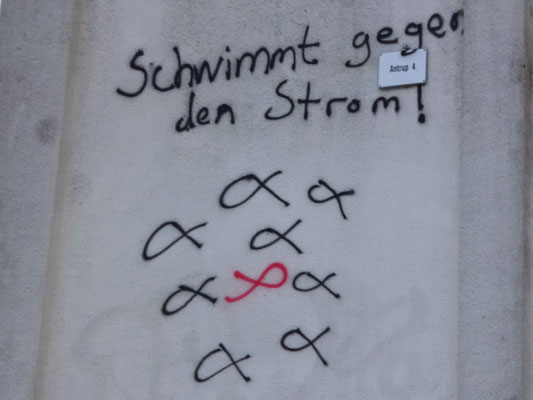 Schwimmt gegen
Antrup 4
den Strom!